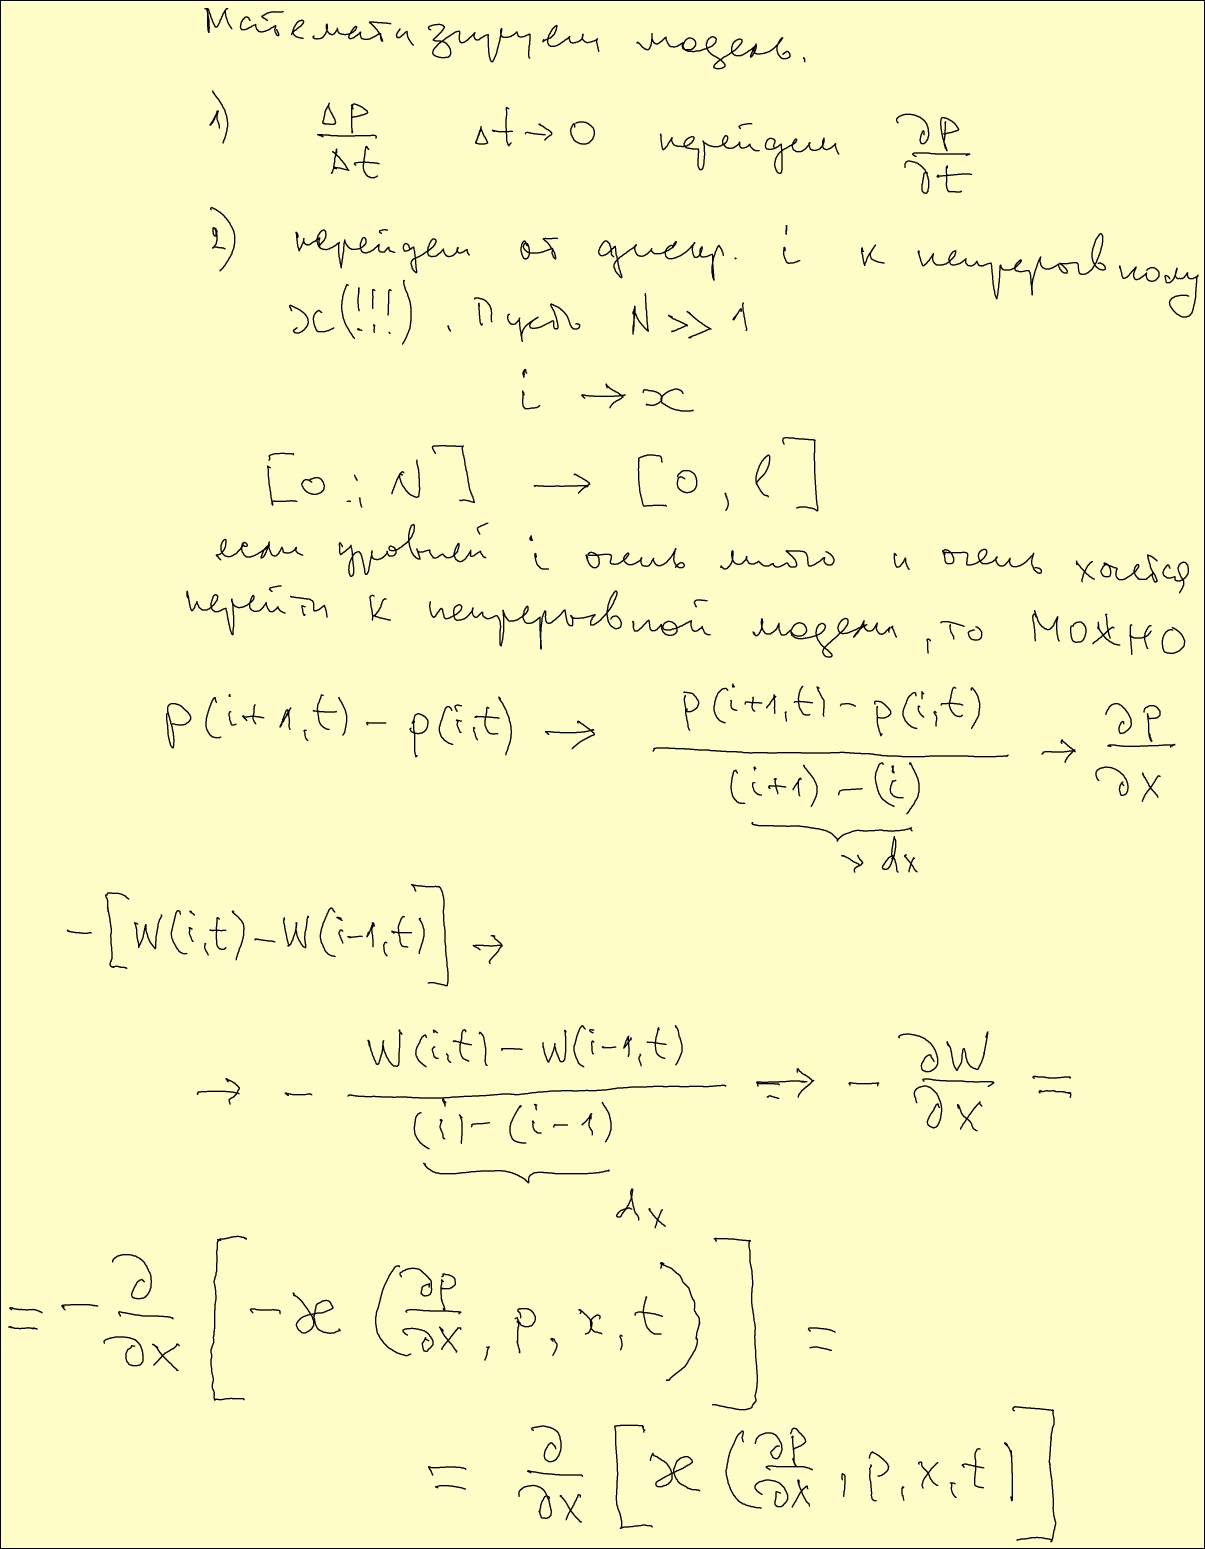 Математизируем модель.
1) ΔP/Δt Δt→0 перейдем ∂P/∂t
2) перейдем от дискр. i к непрерывному
x(!!!). Пусть N >> 1
i → x
[0 ; N] → [0, l]
если уровней i очень много и очень хочется
перейти к непрерывной модели, то МОЖНО
P(i+1,t) - p(i,t) → (P(i+1,t) - p(i,t))/((i+1) - (i)) → ∂P/∂x
→ dx
-[W(i,t) - W(i-1,t)] →
→ - (W(i,t) - W(i-1,t))/((i) - (i-1)) => - ∂W/∂x =
dx
= - ∂/∂x [-æ (∂P/∂x, p, x, t)] =
= ∂/∂x [æ (∂P/∂x, p, x, t)]